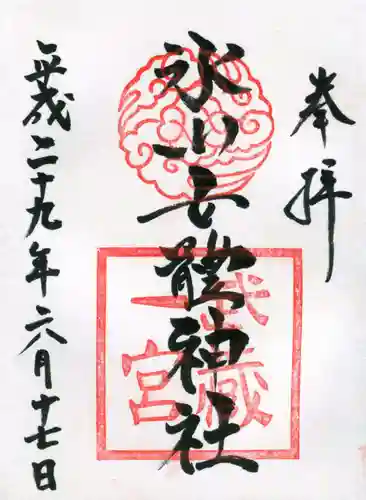 奉拝
氷川女體神社
武蔵
一宮
平成二十九年六月十七日